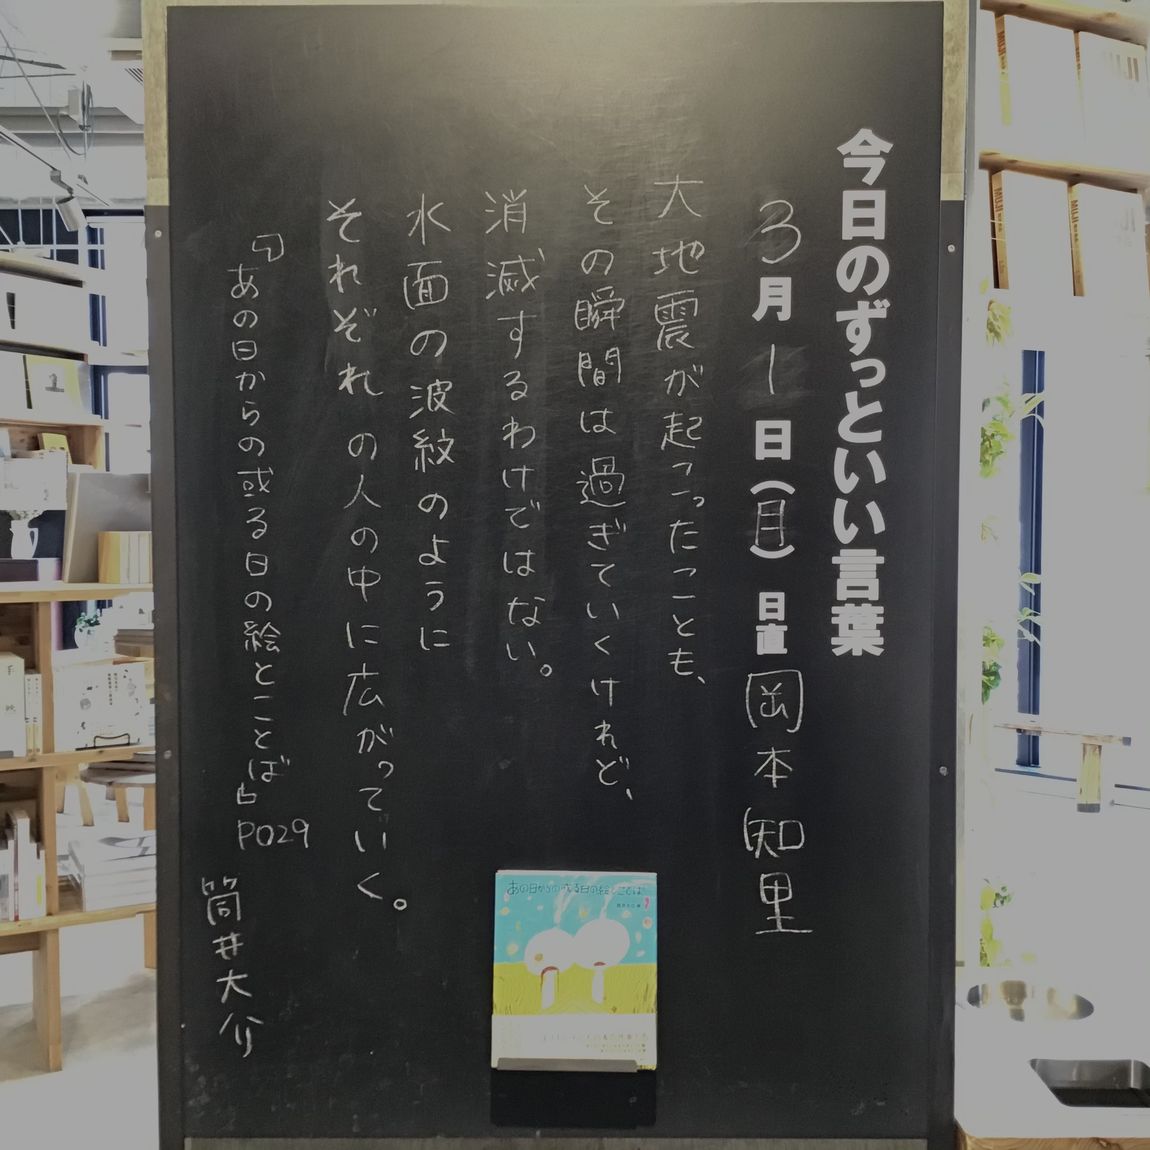 今日のずっといい言葉
3月1日(日)日直 岡本知里
大地震が起こったことも、
その瞬間は過ぎていくけれど、
消滅するわけではない。
水面の波紋のように
それぞれの人の中に広がっていく。
『あの日からの或る日の絵とことば』P029
筒井大介
あの日からの或る日の絵とことば
MUJI
MUJI
MUJI